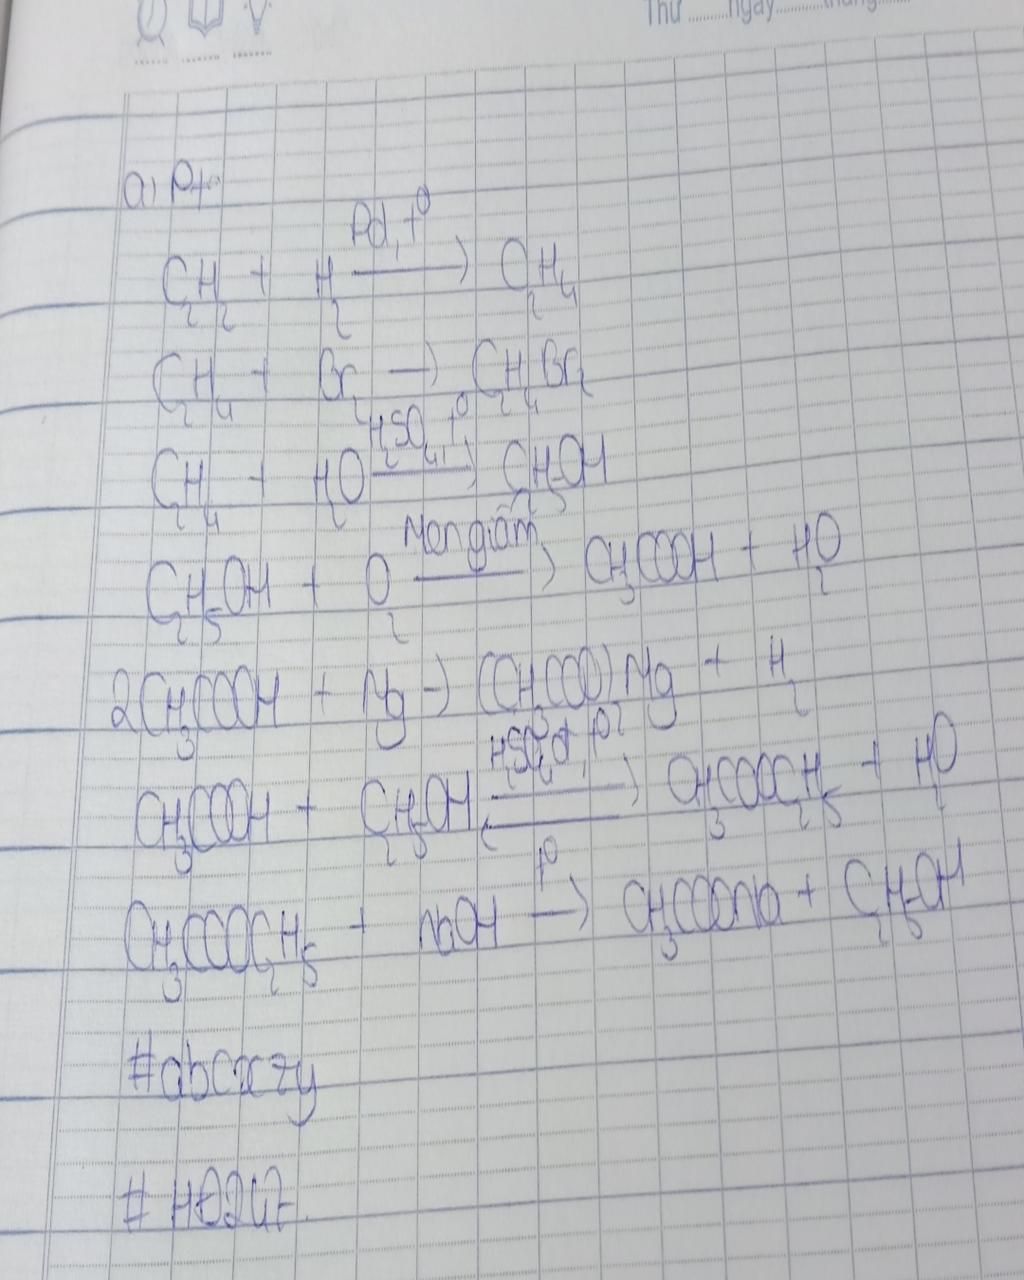 Thứ ........ngày............tháng.........
a, Pt:
C₂H₂ + H₂ →(Pd, t⁰) C₂H₄
C₂H₄ + Br₂ → C₂H₄Br₂
C₂H₄ + H₂O →(H₂SO₄, t⁰) C₂H₅OH
C₂H₅OH + O₂ →(Men giấm) CH₃COOH + H₂O
2CH₃COOH + Mg → (CH₃COO)₂Mg + H₂
CH₃COOH + C₂H₅OH ⇄(H₂SO₄đ, t⁰) CH₃COOC₂H₅ + H₂O
CH₃COOC₂H₅ + NaOH →(t⁰) CH₃COONa + C₂H₅OH
#abcxzy